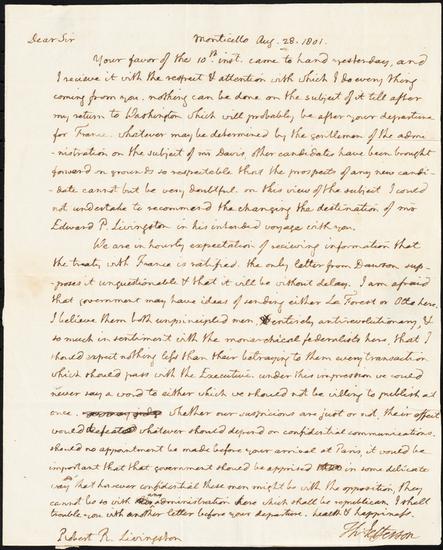 Dear Sir Monticello Aug. 28. 1801.
Your favor of the 10th inst. came to hand yesterday, and
I recieve it with the respect & attention with which I do every thing
coming from you. nothing can be done on the subject of it till after
my return to Washington which will probably be after your departure
for France. whatever may be determined by the gentlemen of the admi-
-nistration on the subject of mr Davis, other candidates have been brought
forward on grounds so respectable that the prospects of any new candi-
-date cannot but be very doubtful. on this view of the subject I could
not undertake to recommend the changing the destination of mr
Edward P. Livingston in his intended voyage with you.
We are in hourly expectation of recieving information that
the treaty with France is ratified. the only letter from Dawson sup-
-poses it unquestionable & that it will be without delay. I am afraid
that government may have ideas of sending either La Forest or Otto here.
I believe them both unprincipled men, entirely antirevolutionary, &
so much in sentiment with the monarchical federalists here, that I
should expect nothing less than their betraying to them every transaction
which should pass with the Executive. under this impression we could
never say a word to either which we should not be willing to publish at
once. whether our suspicions are just or not, their effect
would defeat whatever should depend on confidential communications.
should no appointment be made before your arrival at Paris, it would be
important that that government should be apprised in some delicate
way that however confidential these men might be with the opposition, they
cannot be so with any administration here which shall be republican. I shall
trouble you with another letter before your departure. health & happiness.
Th: Jefferson
Robert R. Livingston